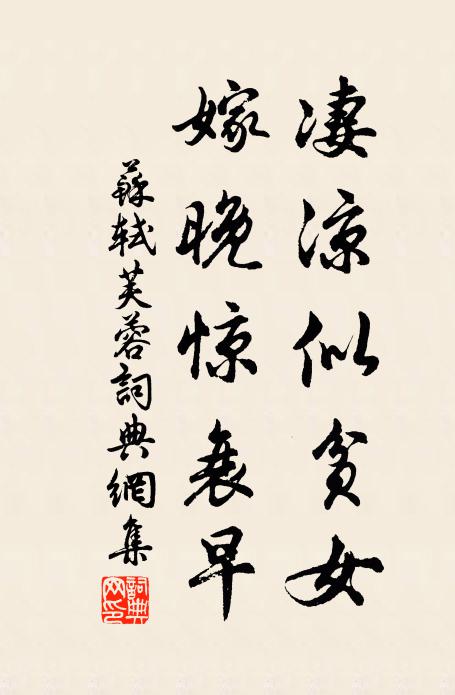 凄涼似貧女
嫁晚惊衰早
蘇軾芙蓉詞典網集
詞典网印